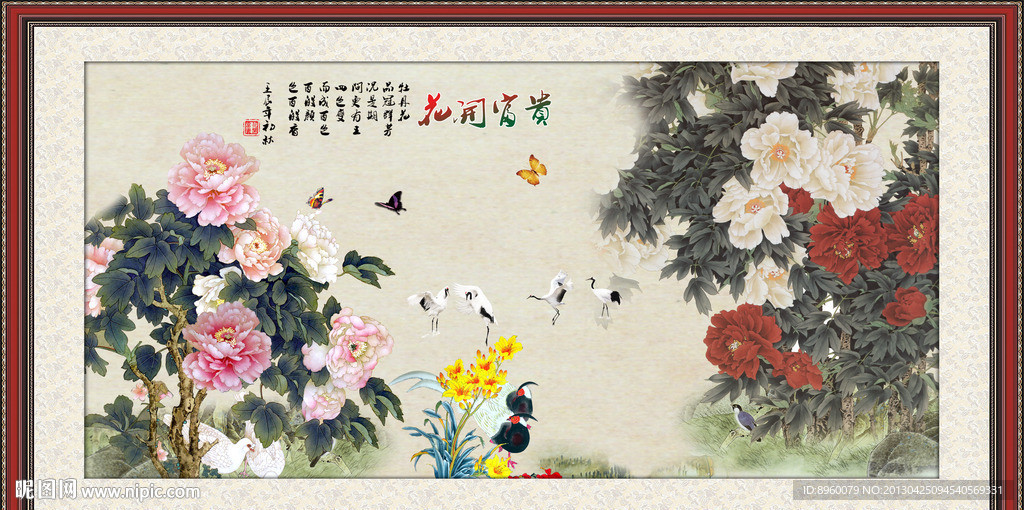 花開富貴
牡丹花
品冠群芳
况是期
间更有王
四色變
而成百色
百般颜
色百般香
壬辰年初秋
昵图网 www.nipic.com
ID:8960079 NO:20130425094540569331